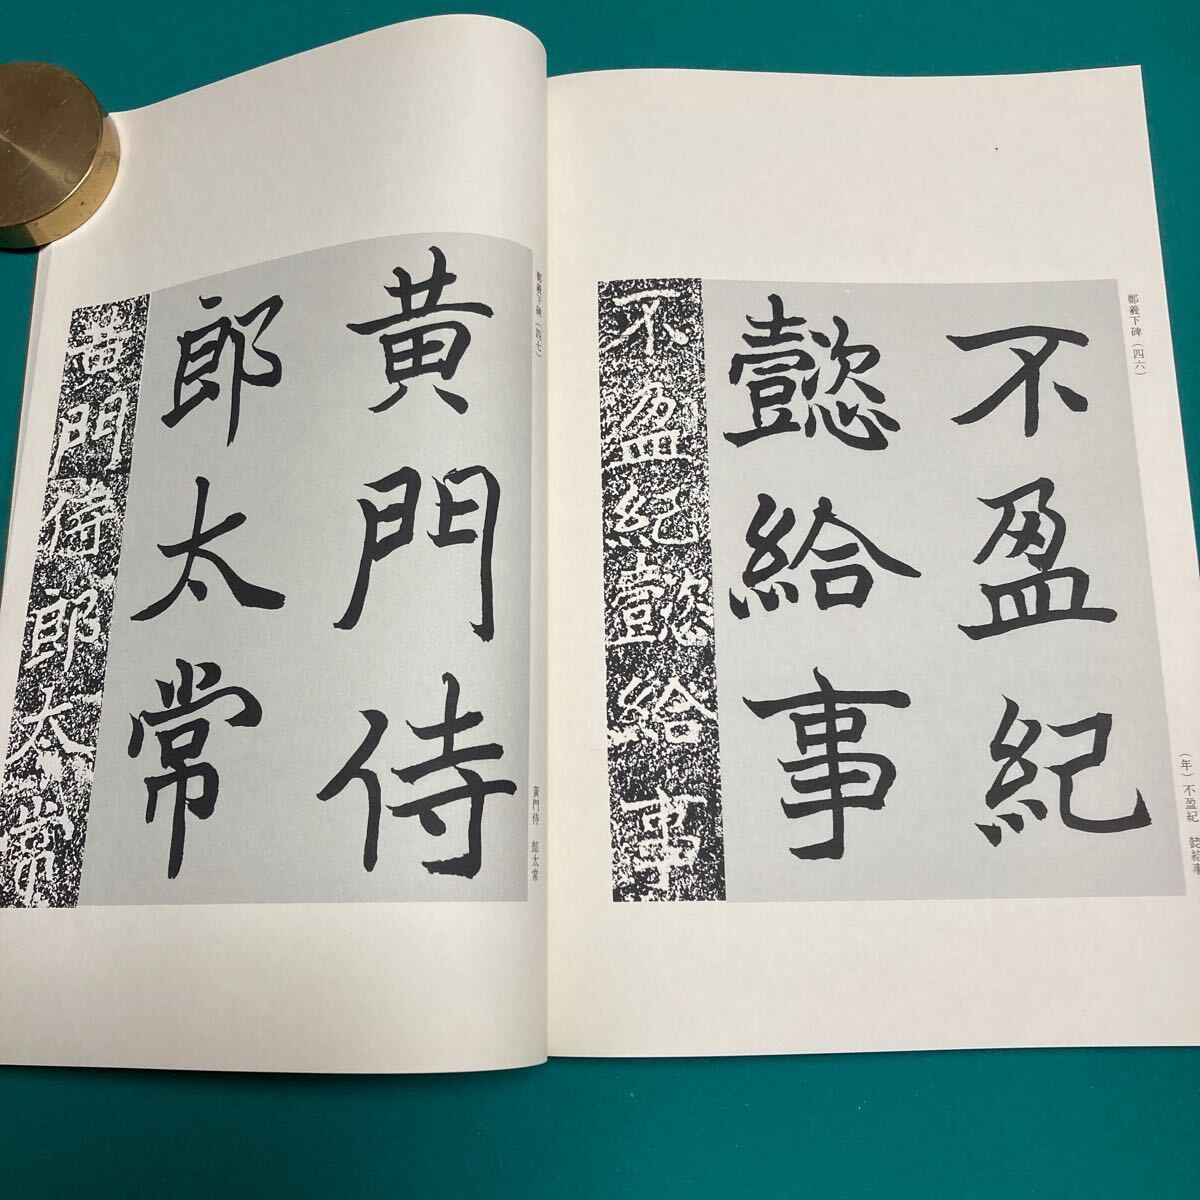 鄭羲下碑（四六）
（年）不盈紀　懿給事
不盈紀
懿給事
不盈紀懿給事
鄭羲下碑（四七）
黃門侍　郎太常
黃門侍
郎太常
黃門侍郎太常